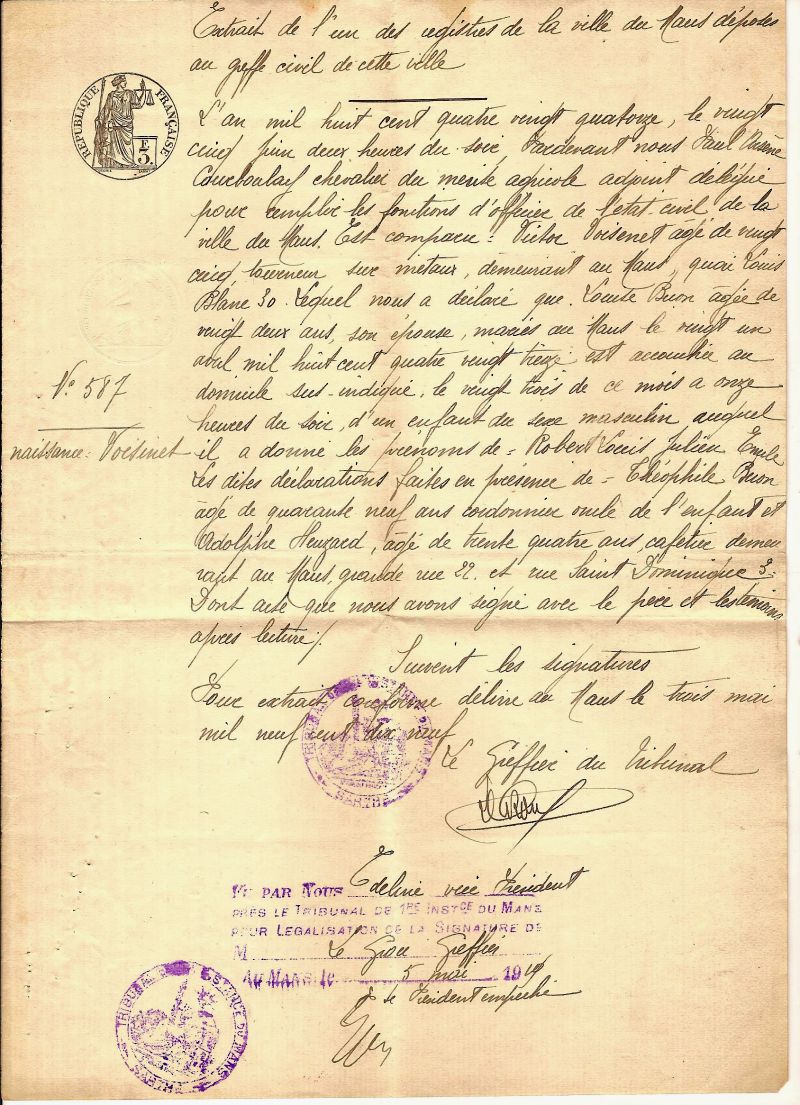 Extrait de l'un des registres de la ville du Mans déposés
au greffe civil de cette ville
RÉPUBLIQUE FRANÇAISE
L'an mil huit cent quatre vingt quatorze, le vingt
cinq juin deux heures du soir, Pardevant nous Paul
chevalier du mérite agricole adjoint délégué
pour remplir les fonctions d'officier de l'état-civil de la
ville du Mans. Est comparu = Victor Voisenet âgé de vingt
cinq tourneur sur métaux, demeurant au Mans, quai Louis
Blanc 30. Lequel nous a déclaré que. Louise Buon âgée de
vingt deux ans, son épouse, mariés au Mans le vingt un
avril mil huit cent quatre vingt treize est accouchée au
domicile sus-indiqué, le vingt trois de ce mois a onze
heures du soir, d'un enfant du sexe masculin auquel
il a donné les prénoms de = Robert Louis Julien Emile
Les dites déclarations faites en présence de = Théophile Buon
âgé de quarante neuf ans cordonnier oncle de l'enfant et
Adolphe Heuzard, âgé de trente quatre ans, cafetier demeu
rant au Mans, grande rue 22. et rue Saint Dominique 3.
Dont acte que nous avons signé avec le père et les témoins
après lecture/.
No 587
naissance = Voisinet
Suivent les signatures
Pour extrait conforme délivré au Mans le trois mai
mil neuf cent dix neuf
Le Greffier du Tribunal
SARTHE
Vu PAR NOUS vice Président
PRÈS LE TRIBUNAL DE 1RE INSTCE DU MANS
POUR LÉGALISATION DE LA SIGNATURE DE
M Greffier
AU MANS, le 5 mai 1919
le Président empêché
TRIBUNAL DE 1RE INSTANCE DU MANS
SARTHE